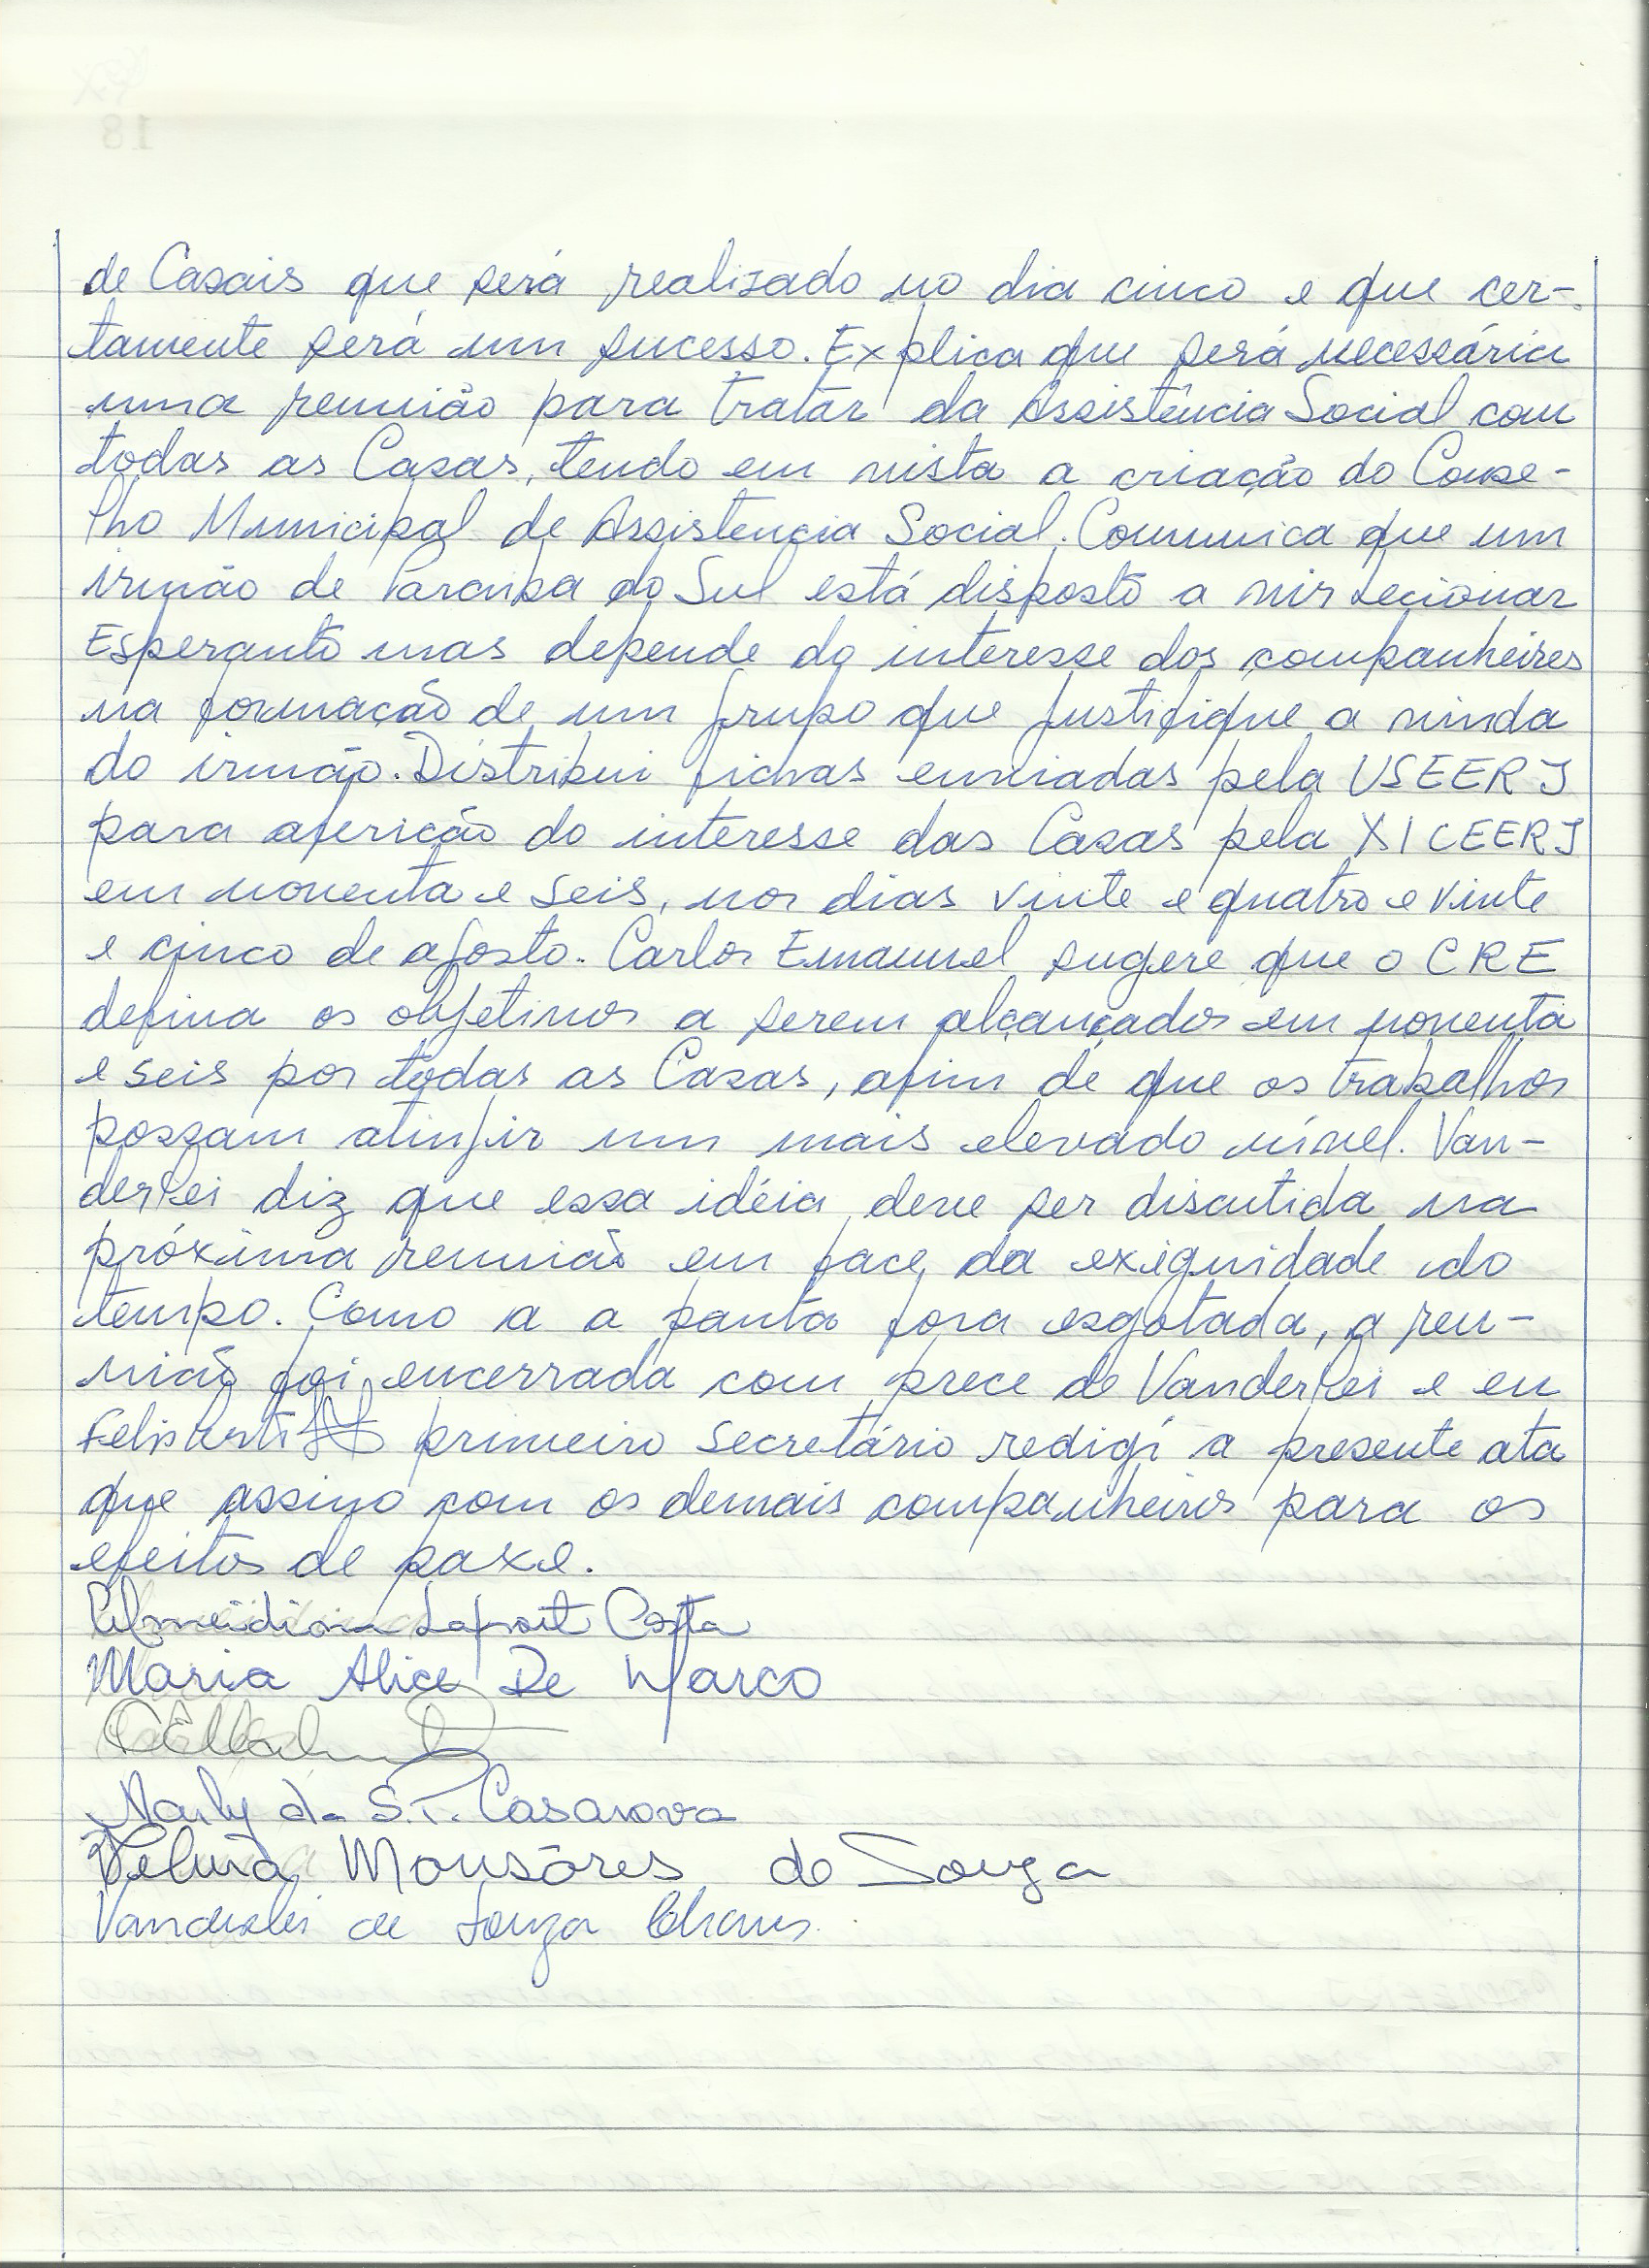 de Casais que será realizado no dia cinco e que cer-
tamente será um sucesso. Explica que será necessária
uma reunião para tratar da Assistência Social com
todas as Casas, tendo em vista a criação do Conse-
lho Municipal de Assistencia Social. Comunica que um
irmão de Paraiba do Sul está disposto a vir lecionar
Esperanto mas depende do interesse dos companheiros
na formação de um grupo que justifique a vinda
do irmão. Distribui fichas enviadas pela USEERJ
para aferição do interesse das Casas pela XI CEERJ
em noventa e seis, nos dias vinte e quatro e vinte
e cinco de agosto. Carlos Emanuel sugere que o CRE
defina os objetivos a serem alcançados em noventa
e seis por todas as Casas, afim de que os trabalhos
possam atingir um mais elevado nível. Van-
derlei diz que essa idéia deve ser discutida na
próxima reunião em face da exiguidade do
tempo. Como a a pauta fora esgotada, a reu-
nião foi encerrada com prece de Vanderlei e eu
primeiro secretário redigí a presente ata
que assino com os demais companheiros para os
efeitos de paxe.
Almeidiana Laport Costa
Maria Alice De Marco
Narly da S.T. Casanova
Velma Monsôres de Souza
Vanderlei de Souza Chaves.